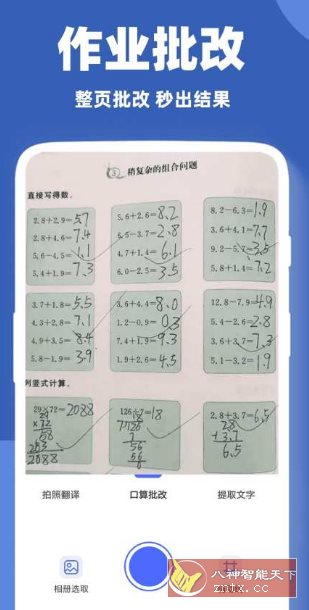 作业批改
整页批改 秒出结果
3 稍复杂的组合问题
直接写得数。
2.8+2.9=5.7 5.6+2.6=8.2 8.2-6.3=1.9
2.8+4.6=7.4 6.5-3.7=2.8 3.6+4.1=7.7
5.6-4.5=1.1 4.7+1.4=6.1 9.2-5.7=3.5
5.4+1.9=7.3 6.0-2.5=3.5 5.8+1.4=7.2
3.7+1.8=5.5 3.6+4.4=8.0 12.8-7.9=4.9
4.3+2.8=7.1 1.2-0.9=0.3 5.4-2.6=2.8
4.9+3.5=8.4 7.4+1.9=9.3 3.6+3.7=7.3
5.8-1.9=3.9 1.9+2.6=4.5 5.1-3.2=1.9
列竖式计算。
29×72=2088 126÷7=18 2.8+3.7=6.5
29 18 2.8
×72 7 126 +3.7
58 7 6.5
203 56
2088 56
0
拍照翻译 口算批改 提取文字
相册选取
八神智能天下
zntx.cc